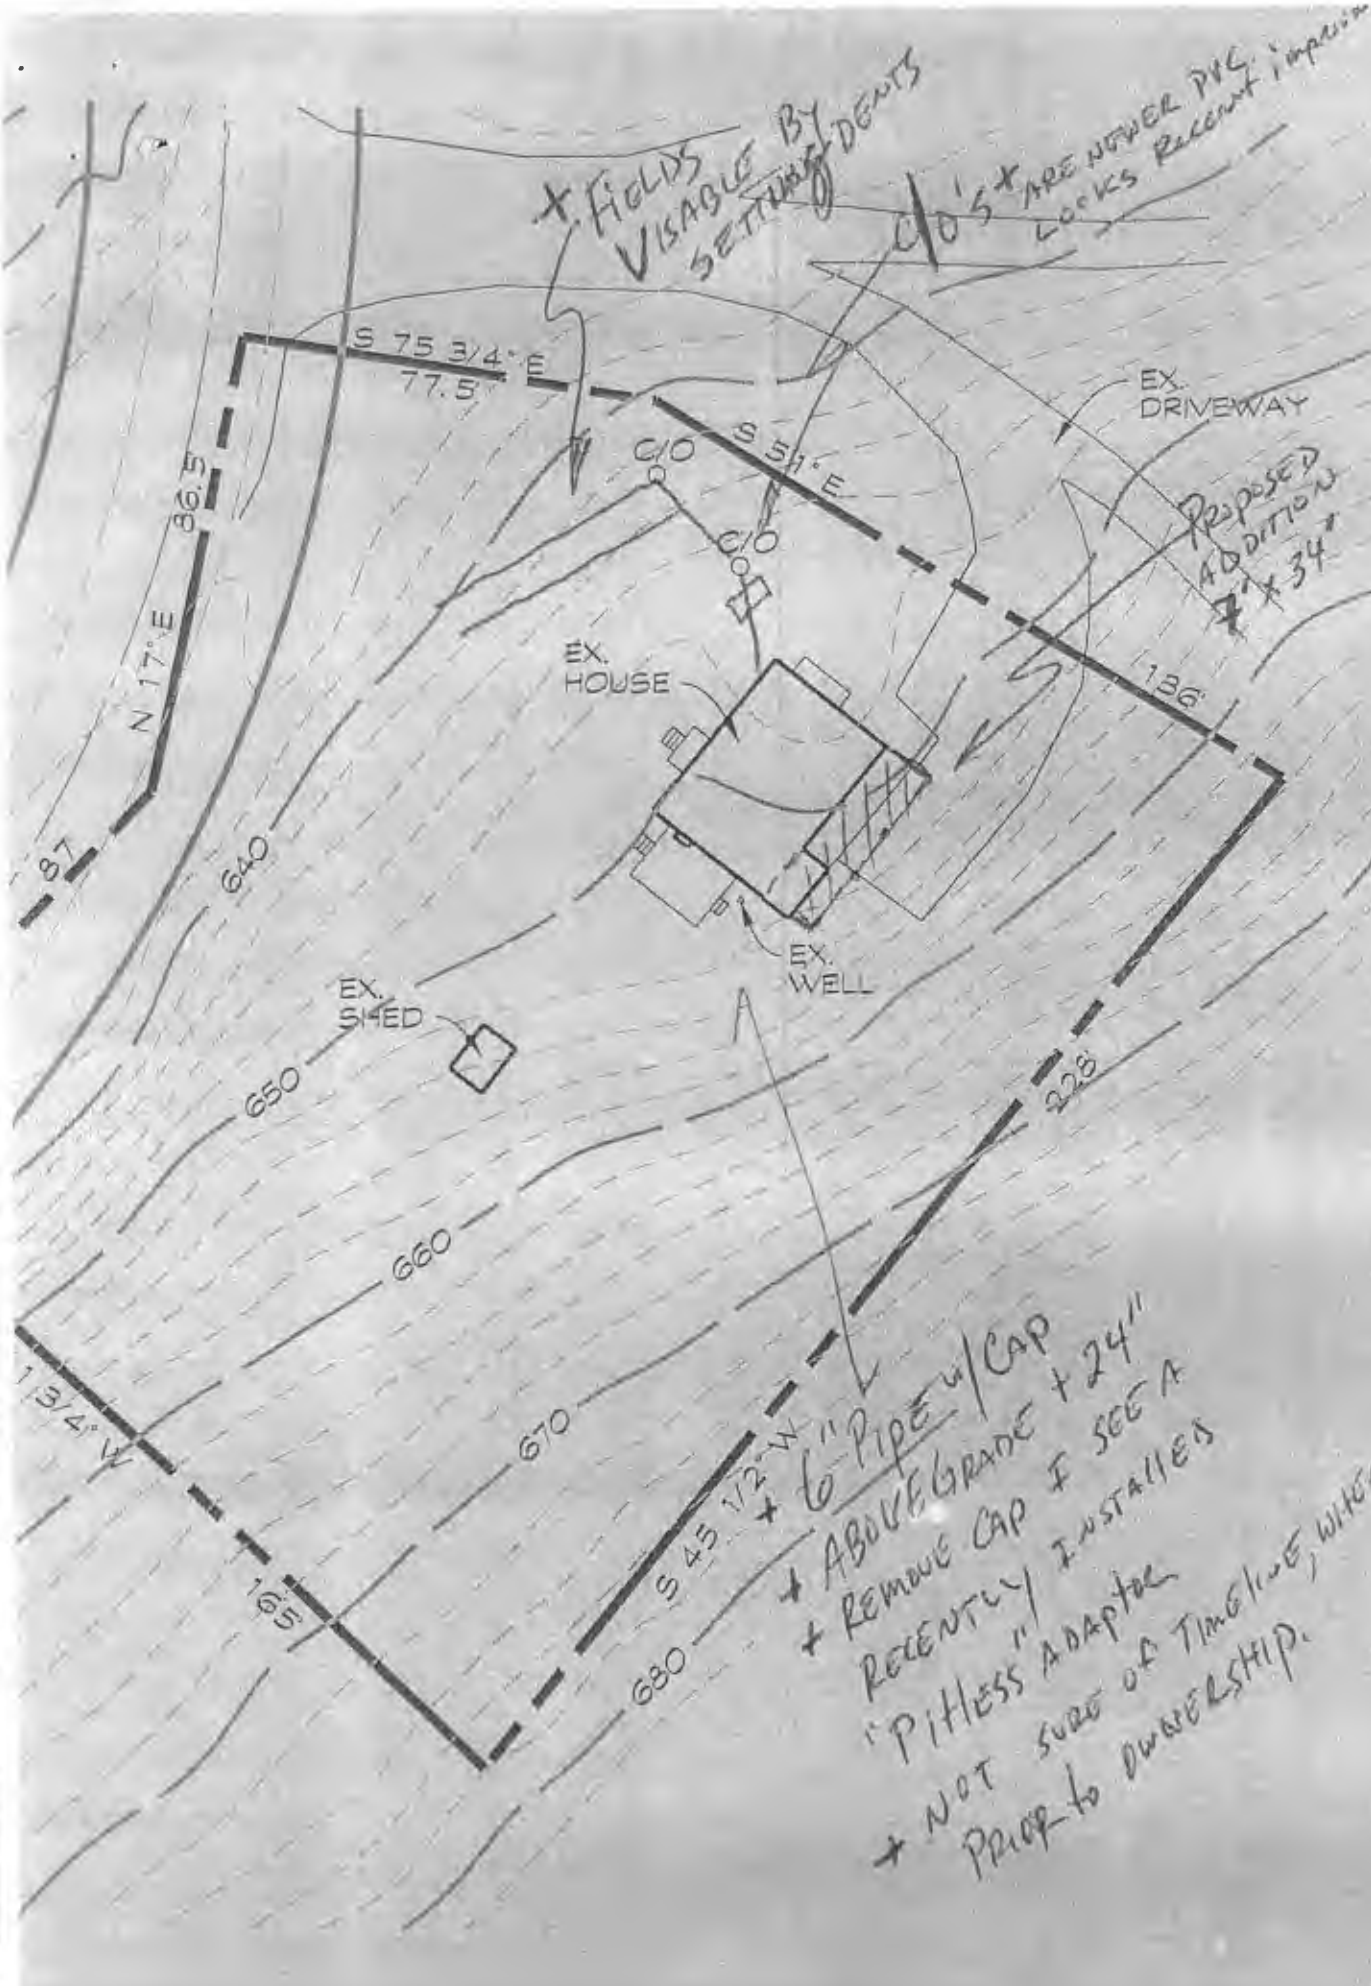 + FIELDS
VISABLE BY
SETTLING DENTS
C/O'S * ARE NEWER PVC.
LOOKS RECENT
S 75 3/4° E
77.5
EX.
DRIVEWAY
C/O
S 51° E
PROPOSED
ADDITION
7' X 34"
86.5
C/O
N 17° E
EX.
HOUSE
136'
87
640
EX.
WELL
EX.
SHED
650
228'
660
1 3/4° W
670
165'
S 45 1/2° W
680
+ 6" PIPE W/CAP
+ ABOVE GRADE + 24"
+ REMOVE CAP I SEE A
RECENTLY INSTALLED
"PITLESS" ADAPTOR
+ NOT SURE OF TIMELINE,
PRIOR to OWNERSHIP.